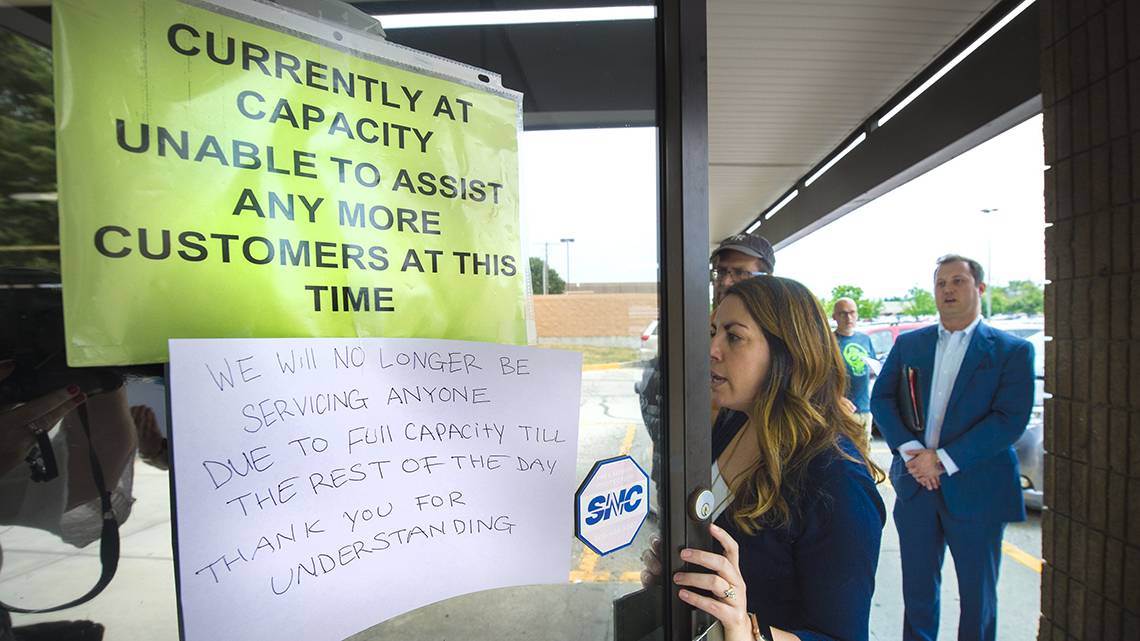 CURRENTLY AT
CAPACITY
UNABLE TO ASSIST
ANY MORE
CUSTOMERS AT THIS
TIME
WE WILL NO LONGER BE
SERVICING ANYONE
DUE TO FULL CAPACITY TILL
THE REST OF THE DAY
THANK YOU FOR
UNDERSTANDING
SMC